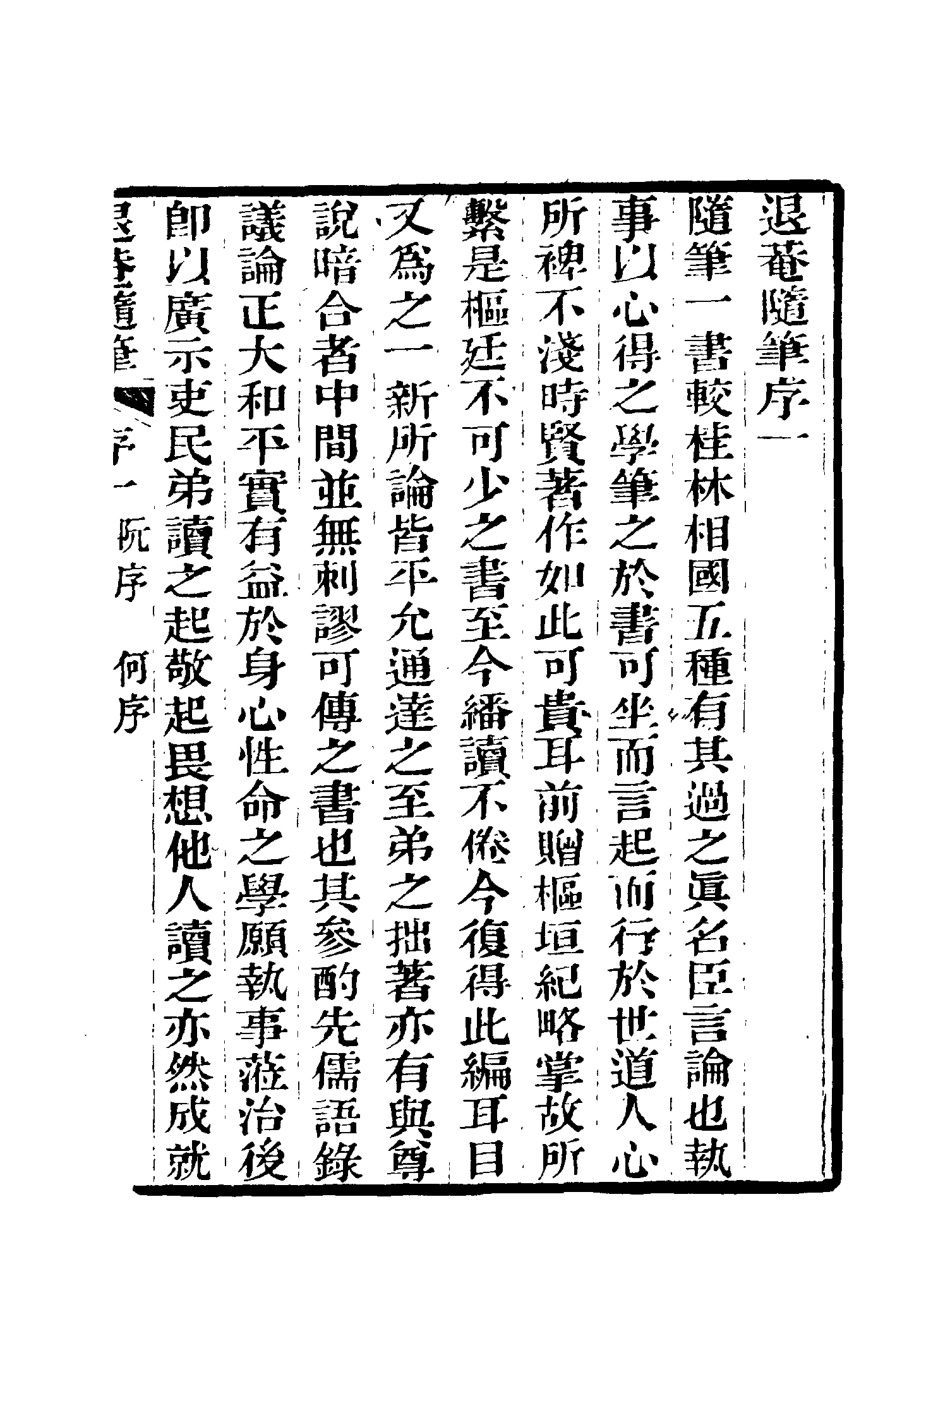 退菴隨筆序一
隨筆一書較桂林相國五種有其過之眞名臣言論也執
事以心得之學筆之於書可坐而言起而行於世道人心
所裨不淺時賢著作如此可貴耳前贈樞垣紀略掌故所
繫是樞廷不可少之書至今繙讀不倦今復得此編耳目
又爲之一新所論皆平允通達之至弟之拙著亦有與尊
說暗合者中間並無刺謬可傳之書也其參酌先儒語錄
議論正大和平實有益於身心性命之學願執事蒞治後
卽以廣示吏民弟讀之起敬起畏想他人讀之亦然成就
退菴隨筆 序一 阮序 何序